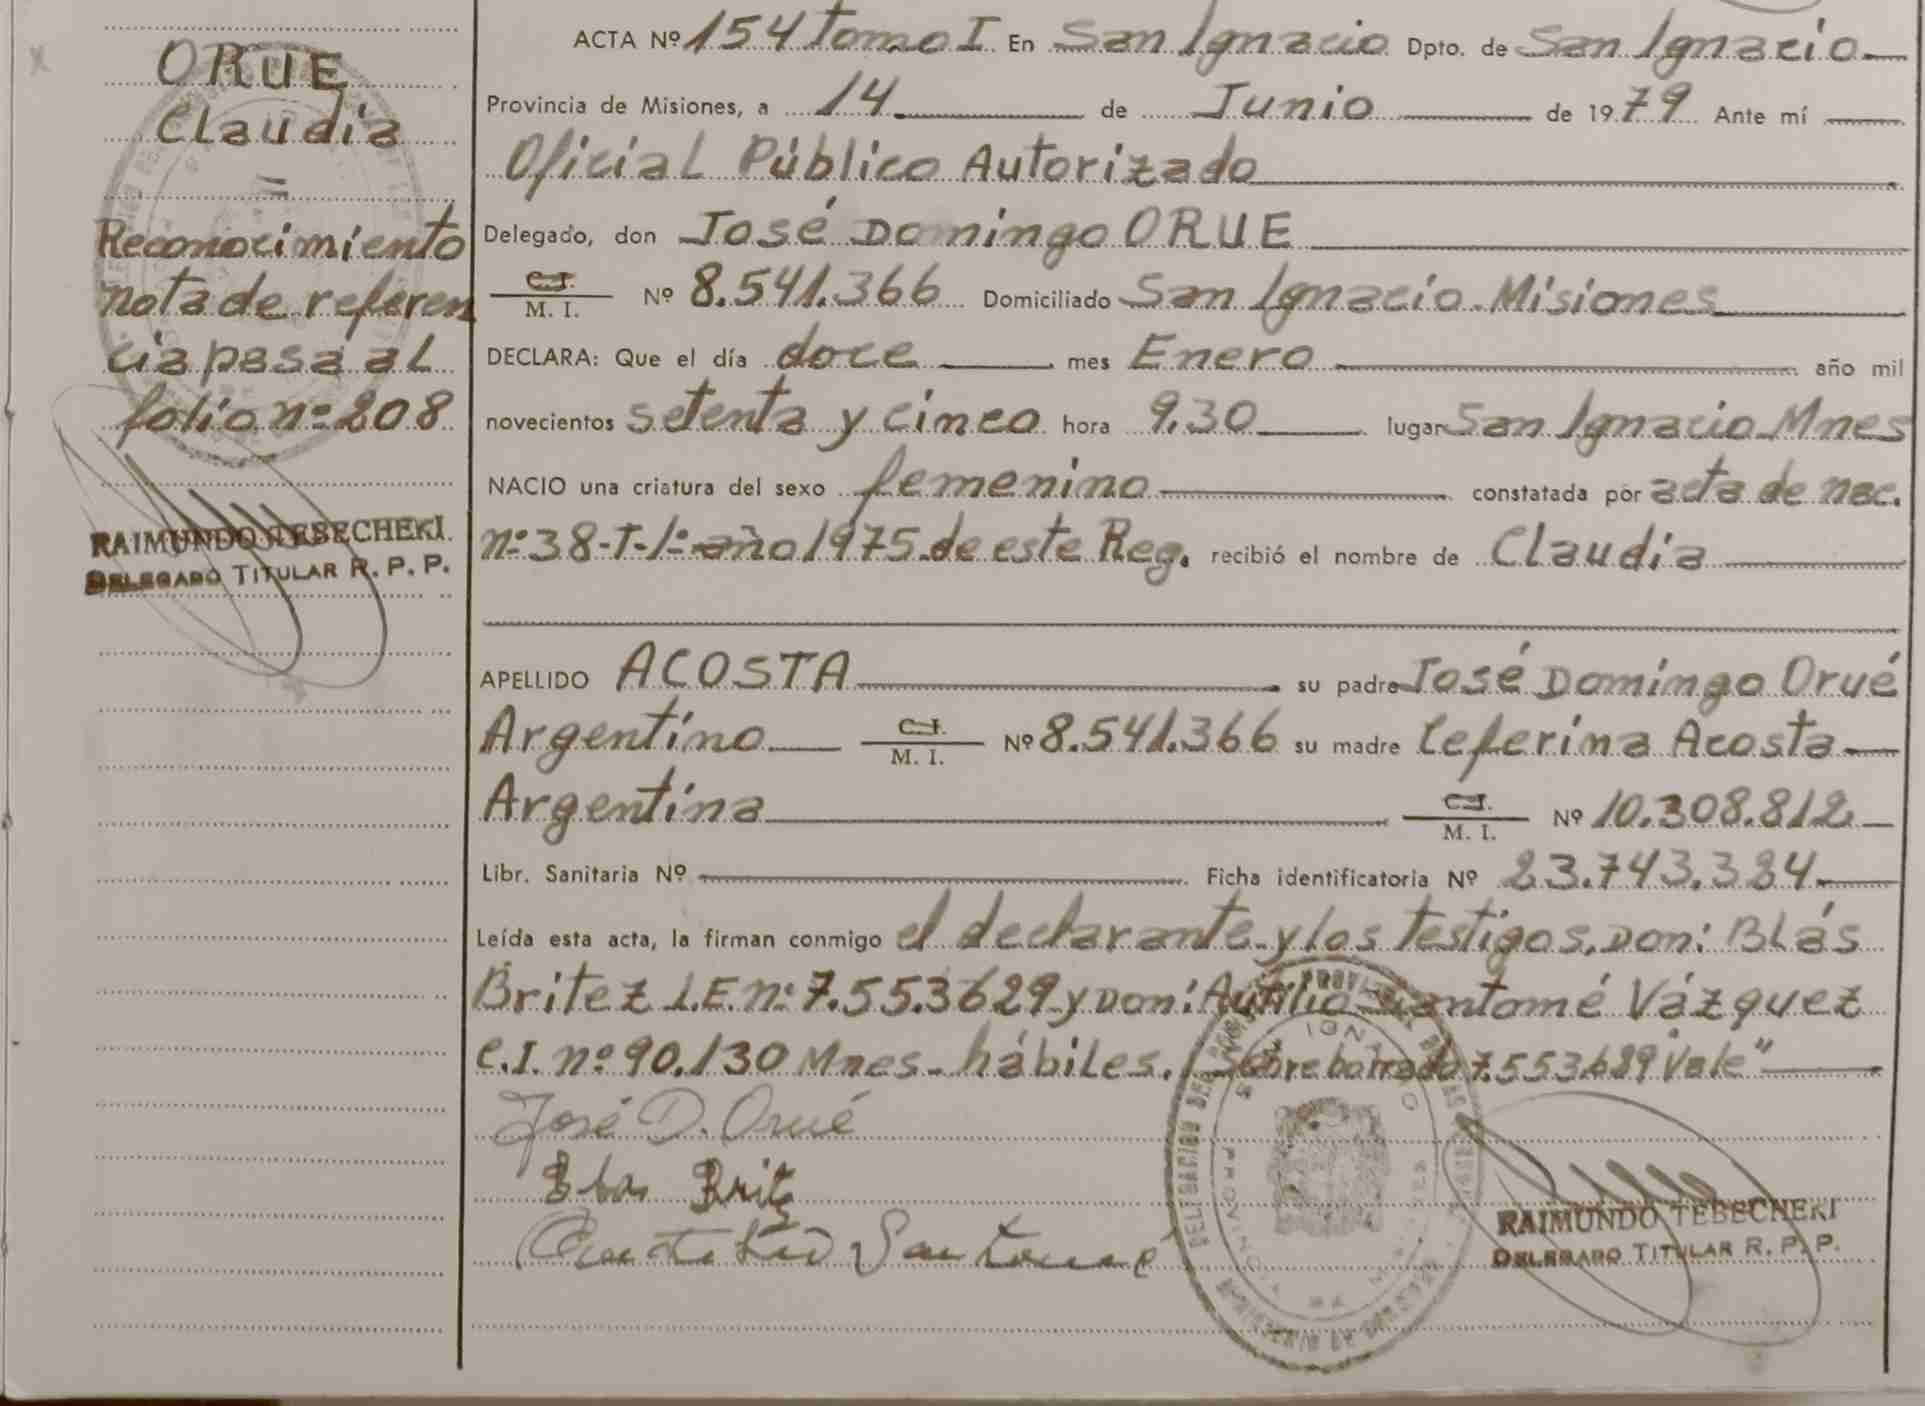 ORUE
Claudia
=
Reconocimiento
nota de referen
cia pasa al
folio nº 208
RAIMUNDO TEBECHEKI
DELEGADO TITULAR R. P. P.
ACTA Nº 154 Tomo I En San Ignacio Dpto. de San Ignacio
Provincia de Misiones, a 14 de Junio de 1979 Ante mí
Oficial Público Autorizado
Delegado, don José Domingo ORUE
C.I. M. I. Nº 8.541.366 Domiciliado San Ignacio-Misiones
DECLARA: Que el día doce mes Enero año mil
novecientos setenta y cinco hora 9.30 lugar San Ignacio Mnes
NACIO una criatura del sexo femenino constatada por acta de nac.
nº 38-T-1º año 1975 de este Reg. recibió el nombre de Claudia
APELLIDO ACOSTA su padre José Domingo Orué
Argentino C.I. M. I. Nº 8.541.366 su madre Ceferina Acosta
Argentina C.I. M. I. Nº 10.308.812
Libr. Sanitaria Nº Ficha identificatoria Nº 23.743.324
Leída esta acta, la firman conmigo el declarante y los testigos, Don: Blás
Britez L.E. nº 7.553629 y Don: Santomé Vázquez
C.I. nº 90.130 Mnes- hábiles. Sobre borrado 7.553.689 Vale"
José D. Orué
Blas Britz
Santomé
RAIMUNDO TEBECHEKI
DELEGADO TITULAR R. P. P.